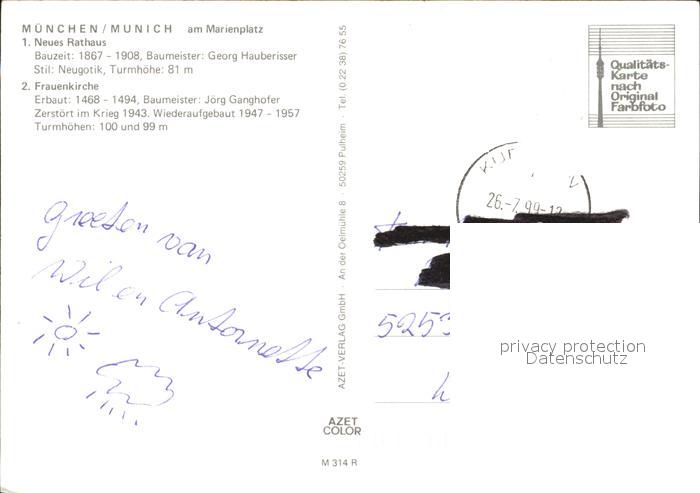 MÜNCHEN / MUNICH am Marienplatz
1. Neues Rathaus
Bauzeit: 1867 - 1908, Baumeister: Georg Hauberisser
Stil: Neugotik, Turmhöhe: 81 m
2. Frauenkirche
Erbaut: 1468 - 1494, Baumeister: Jörg Ganghofer
Zerstört im Krieg 1943. Wiederaufgebaut 1947 - 1957
Turmhöhen: 100 und 99 m
Groeten van
Wil en Antoinette
AZET-VERLAG GmbH · An der Oelmühle 8 · 50259 Pulheim · Tel. (0 22 38) 76 55
AZET
COLOR
M 314 R
Qualitäts-
Karte
nach
Original
Farbfoto
26.-7.99-12
5253
privacy protection
Datenschutz